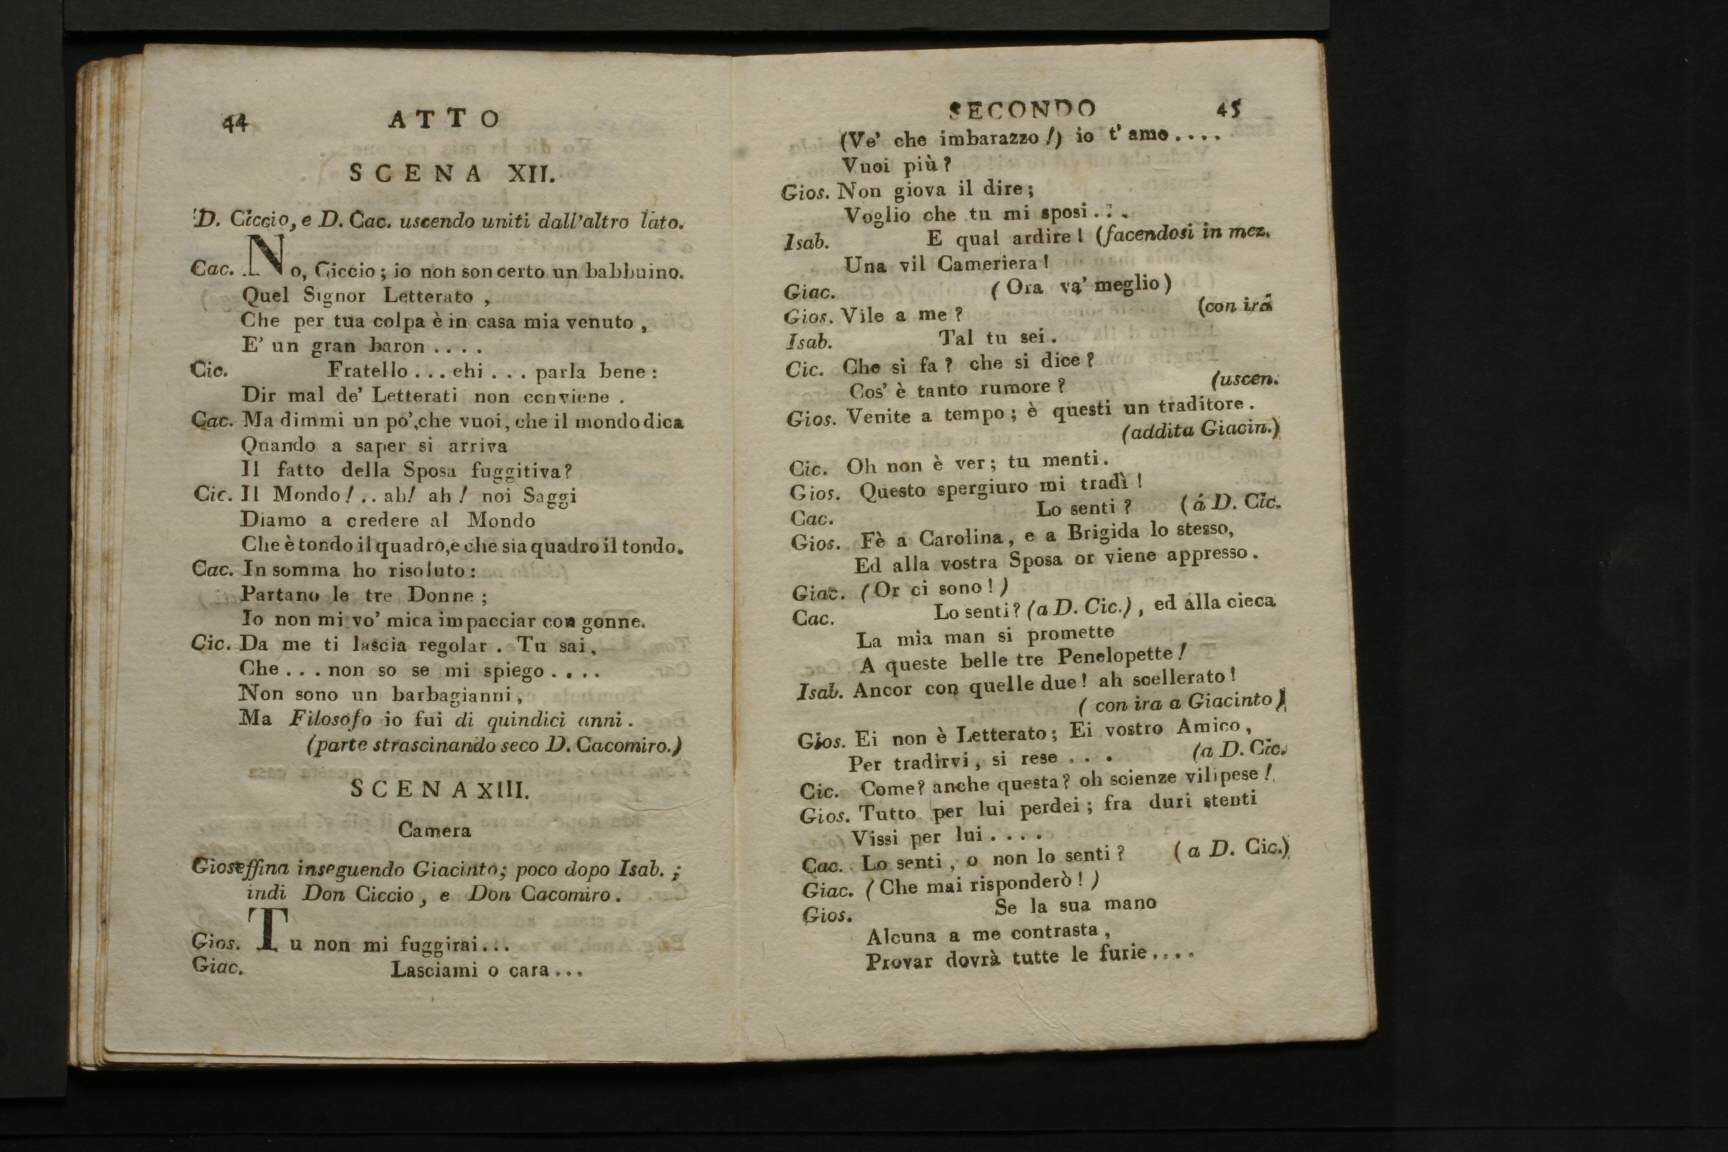 44 ATTO
SCENA XII.
D. Ciccio, e D. Cac. uscendo uniti dall'altro lato.
Cac. No, Ciccio; io non son certo un babbuino.
Quel Signor Letterato,
Che per tua colpa è in casa mia venuto,
E' un gran baron....
Cic. Fratello... ehi... parla bene:
Dir mal de' Letterati non conviene.
Cac. Ma dimmi un pò', che vuoi, che il mondo dica
Quando a saper si arriva
Il fatto della Sposa fuggitiva?
Cic. Il Mondo!.. ah! ah! noi Saggi
Diamo a credere al Mondo
Che è tondo il quadro, e che sia quadro il tondo.
Cac. In somma ho risoluto:
Partano le tre Donne;
Io non mi vo' mica impacciar con gonne.
Cic. Da me ti lascia regolar. Tu sai,
Che... non so se mi spiego....
Non sono un barbagianni,
Ma Filosofo io fui di quindici anni.
(parte strascinando seco D. Cacomiro.)
SCENA XIII.
Camera
Gioseffina inseguendo Giacinto; poco dopo Isab.;
indi Don Ciccio, e Don Cacomiro.
Gios. Tu non mi fuggirai...
Giac. Lasciami o cara...
SECONDO 45
(Ve' che imbarazzo!) io t'amo....
Vuoi più?
Gios. Non giova il dire;
Voglio che tu mi sposi...
Isab. E qual ardire! (facendosi in mez.
Una vil Cameriera!
Giac. (Ora va' meglio)
Gios. Vile a me? (con irá
Isab. Tal tu sei.
Cic. Che si fa? che si dice?
Cos' è tanto rumore? (uscen.
Gios. Venite a tempo; è questi un traditore.
(addita Giacin.)
Cic. Oh non è ver; tu menti.
Gios. Questo spergiuro mi tradì!
Cac. Lo senti? (á D. Cic.
Gios. Fè a Carolina, e a Brigida lo stesso,
Ed alla vostra Sposa or viene appresso.
Giac. (Or ci sono!)
Cac. Lo senti? (a D. Cic.), ed alla cieca
La mia man si promette
A queste belle tre Penelopette!
Isab. Ancor con quelle due! ah scellerato!
(con ira a Giacinto)
Gios. Ei non è Letterato; Ei vostro Amico,
Per tradirvi, si rese... (a D. Cic.
Cic. Come? anche questa? oh scienze vilipese!
Gios. Tutto per lui perdei; fra duri stenti
Vissi per lui....
Cac. Lo senti, o non lo senti? (a D. Cic.)
Giac. (Che mai risponderò!)
Gios. Se la sua mano
Alcuna a me contrasta,
Provar dovrà tutte le furie....